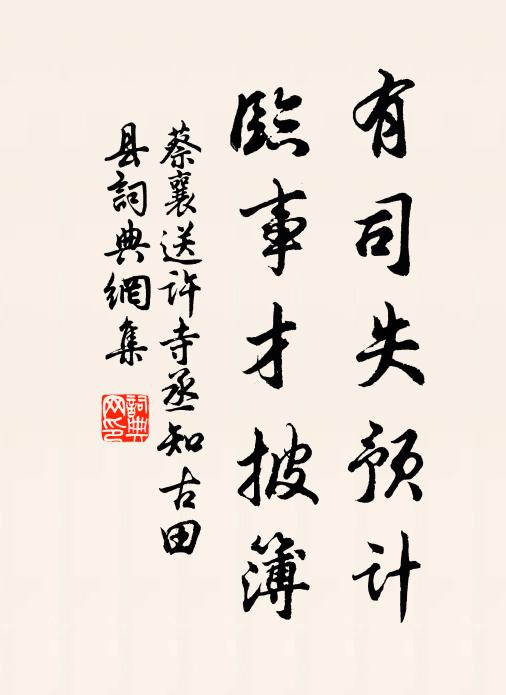 有司失预计
臨事才披簿
蔡襄送许寺丞知古田
县詞典網集
詞典
网印